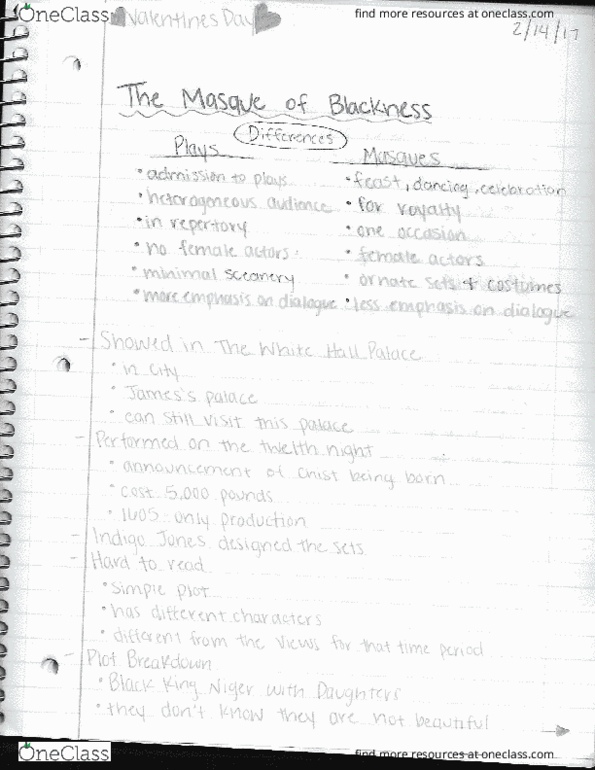 OneClass find more resources at oneclass.com
Valentines Day
2/14/17
The Masque of Blackness
Differences
Plays Masques
• admission to plays • feast, dancing, celebration
• heterogeneous audience • for royalty
• in repertory • one occasion
• no female actors • female actors
• minimal sceanery • ornate sets & costumes
• more emphasis on dialogue • less emphasis on dialogue
- Showed in The White Hall Palace
• in city
• James's palace
• can still visit this palace
- Performed on the twelth night
• announcement of christ being born
• cost 5,000 pounds
• 1605 only production
- Indigo Jones designed the sets
- Hard to read
• simple plot
• has different characters
• different from the views for that time period
- Plot Breakdown
• Black King Niger with Daughters
• they don't know they are not beautiful
OneClass find more resources at oneclass.com